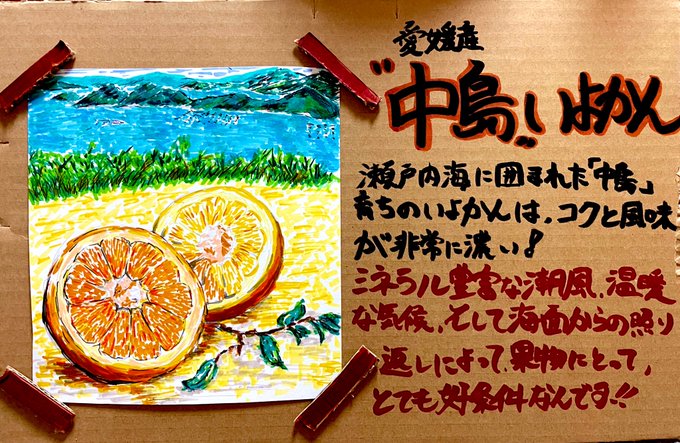 愛媛産
"中島"いよかん
瀬戸内海に囲まれた「中島」
育ちのいよかんは、コクと風味
が非常に濃い!
ミネラル豊富な潮風、温暖
な気候、そして海面からの照り
返しによって、果物にとって、
とても好条件なんです!!